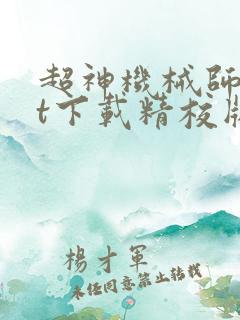 超神機械師
t下載精校版
楊才軍
未經同意禁止轉載